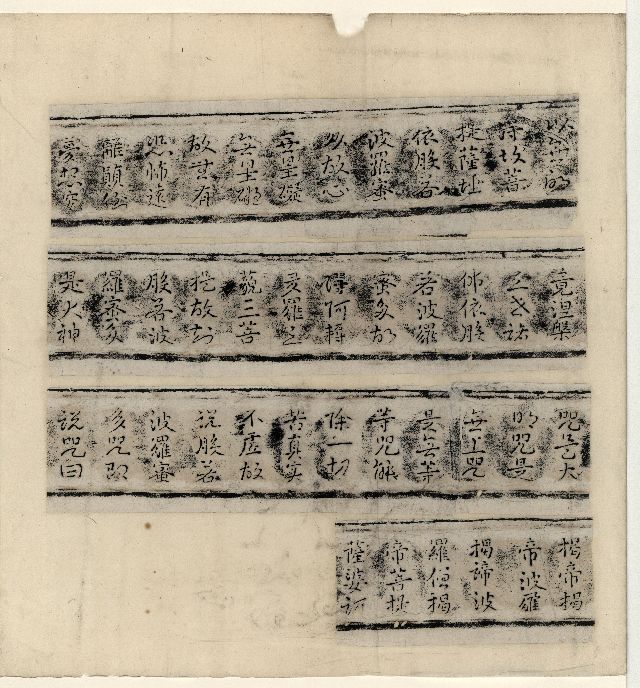 以無所
得故菩
提薩埵
依般若
波羅蜜
多故心
無罣礙
無罣礙
故無有
恐怖遠
離顛倒
夢想究
竟涅槃
三世諸
佛依般
若波羅
蜜多故
得阿耨
多羅三
藐三菩
提故知
般若波
羅蜜多
是大神
咒是大
明咒是
無上咒
是無等
等咒能
除一切
苦真實
不虛故
說般若
波羅蜜
多咒即
說咒曰
揭帝揭
帝波羅
揭諦波
羅僧揭
帝菩提
薩婆訶